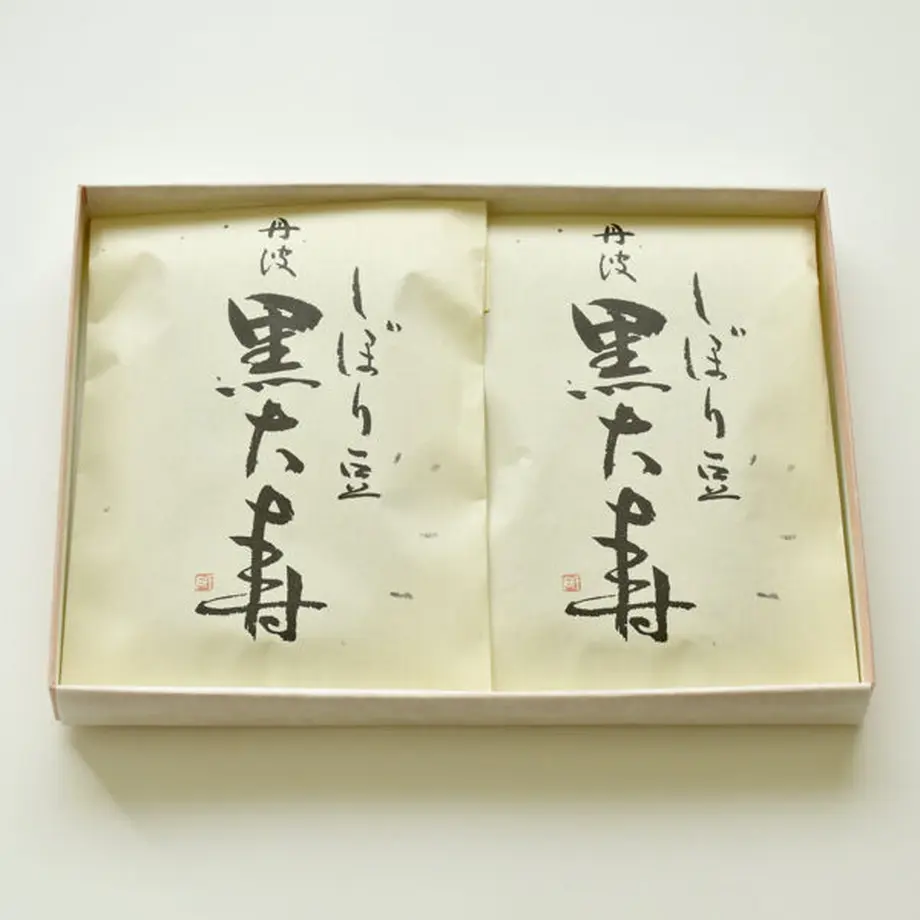 しぼり豆
丹波
黒大寿
しぼり豆
丹波
黒大寿